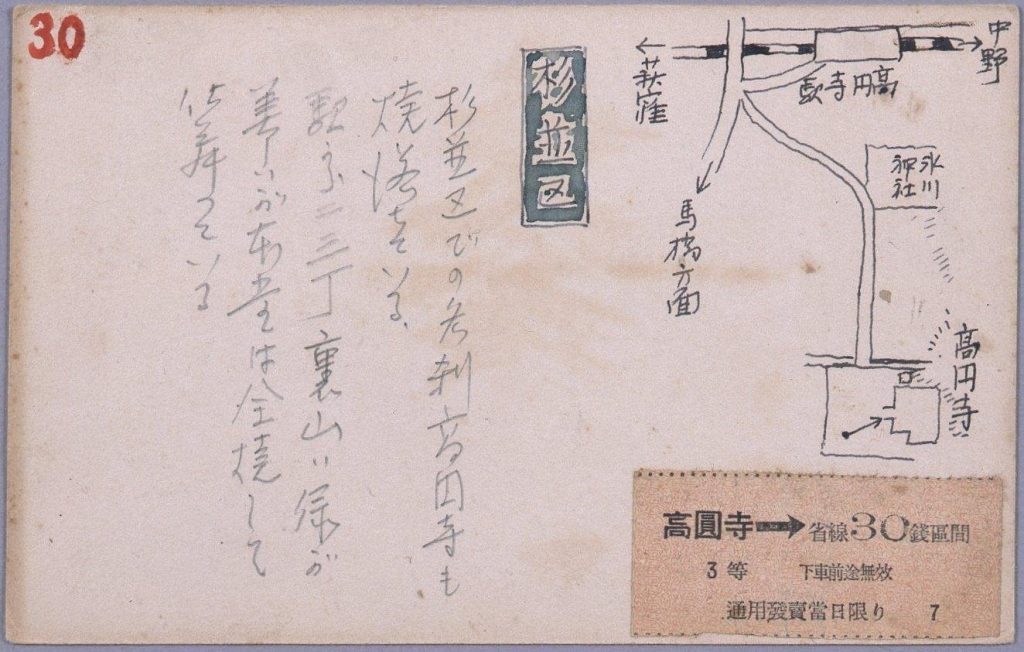 30
中野
高円寺駅
荻窪
氷川
神社
馬橋方面
高円寺
杉並区
杉並区での名刹高円寺も
焼落ちている
駅 二三丁裏山ハ緑が
美しいが本堂は全焼して
仕舞つている
高圓寺➡省線30錢區間
3等 下車前途無效
通用發賣當日限り 7